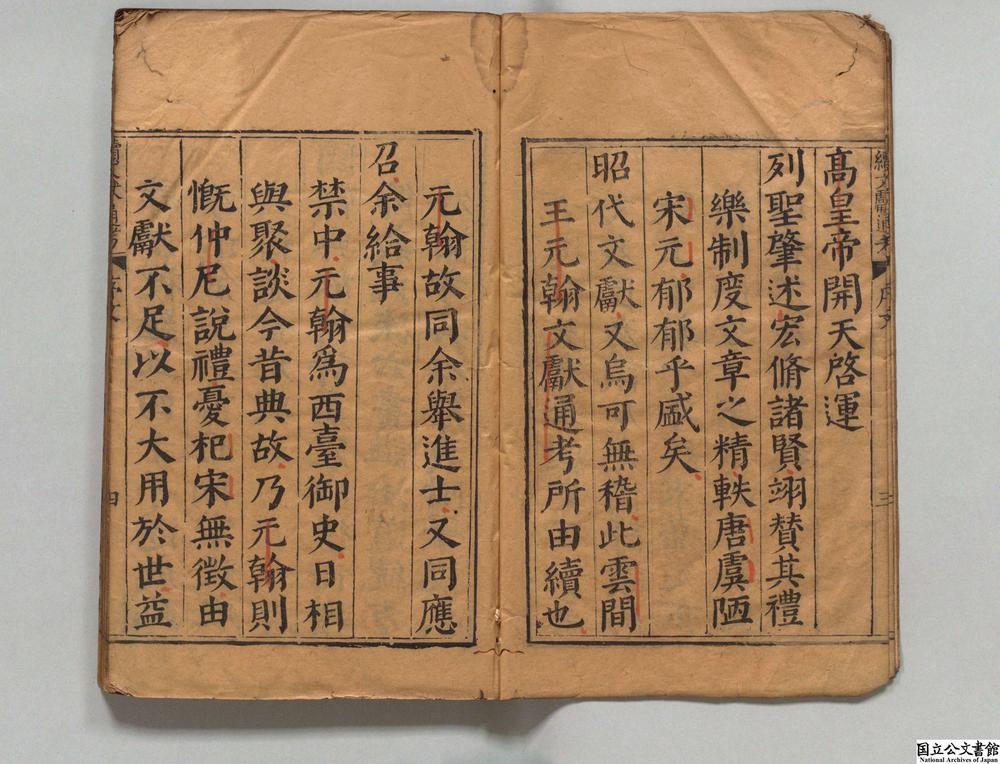 高皇帝開天啓運
列聖肇述宏脩諸賢翊賛其禮
樂制度文章之精軼唐虞陋
宋元郁郁乎盛矣
昭代文獻又烏可無稽此雲間
王元翰文獻通考所由續也
元翰故同余舉進士又同應
召余給事
禁中元翰爲西臺御史日相
與聚談今昔典故乃元翰則
慨仲尼說禮憂杞宋無徴由
文獻不足以不大用於世益
三
四
国立公文書館
National Archives of Japan